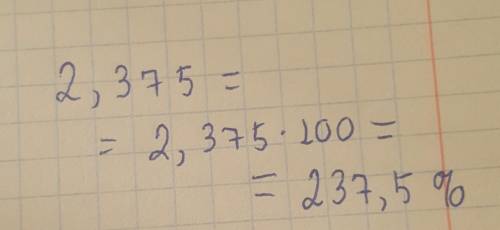 2,375 =
= 2,375·100 =
= 237,5 %